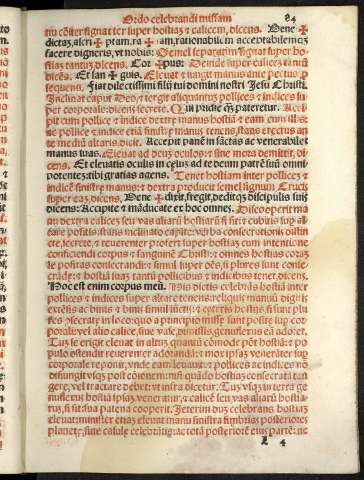 Ordo celebrandi missam 84
ni cõiter signat ter super hostiaz & calicem, dicens. Bene ✠
dictaz, ascri ✠ ptam, ra ✠ am, rationabilem acceptabilemqz
facere digneris, ut nobis: Semel separatim signat super ho-
stiaz tantuz, dicens, Cor ✠ pus: Deinde super calicez tantũ
dicẽs. Et san ✠ guis. Elevat & iungit manus ante pectus, p
sequens. Fiat dilectissimi filij tui domini nostri Jesu Christi.
Inclinat caput Deo, & tergit aliquantũ pollices & indices su-
per corporale dicens secrete. Qui pridie qm̃ pateretur. Acci
pit cum pollice & indice dextre manus hostiã & eam cum illis
ne pollice & indice etiã sinistre manus tenens, stans erectus an
te mediũ altaris, dicit. Accepit panẽ in sactas ac venerabiles
manus suas. Elevat ad deuz oculos & sine mora demittit, di-
cens. Et elevatis oculis in celuz ad te deum patrẽ suũ omni
potentez, tibi gratias agens. Tenet hostiam inter pollicez &
indicẽ sinistre manus: & dextra producit semel signum Crucis
super eaz, dicens, Bene ✠ dixit, fregit, deditqz discipulis suis
dicens: Accipite & mãducate ex hoc omnes. Discooperit ma
nu dextra calicẽ seu vas aliarũ hostiarũ si
facie positis: stans inclinato capite: verba consecrationis distin
cte, secrete, & reverenter profert super hostiaz cum intentione
conficiendi corpus & sanguinẽ Christi: & omnes hostias coraz
se positas consecrandi: & simul super oẽs, si plures sint conse-
crãde: & hostiã suaz tantũ pollicibus & indicibus tenet, dicens,
Hoc est enim corpus meũ. His dictis celebrãs hostiã inter
pollices & indices super altare tenens: reliquis manuũ digitis
extẽsis ac binis & binis simul iunctis: & ceteris hostijs si sint plu
res cõsecrate in loco: quo a principio misse sunt posite sup cor-
porali: vel alio calice, sive vase, genuflexus eũ adorat.
Tuz se erigit elevat in altuz quantũ cõmode põt hostiã: & po
pulo ostendit reverenter adorandã: & mox ipsaz veneratẽr sup
corporale reponit, unde eam levavit: & pollices ac indices nõ
disiungit usqz post cõmunionem: nisi quãdo hostiaz consecratã tan
gere, vel tractare debet: ut infra dicetur. Tuz usqz in terrã ge
nuflexus hostiã ipsaz veneratur, & calicẽ seu vas aliarũ hostia-
ruz, si sit sua patena cooperit. Interim duz celebrans hostiaz
elevat: minister etiaz elevat manu sinistra fimbrias posteriores
planete, sive casule celebrãtis: ac totã posteriorẽ eius partẽ: ne
4